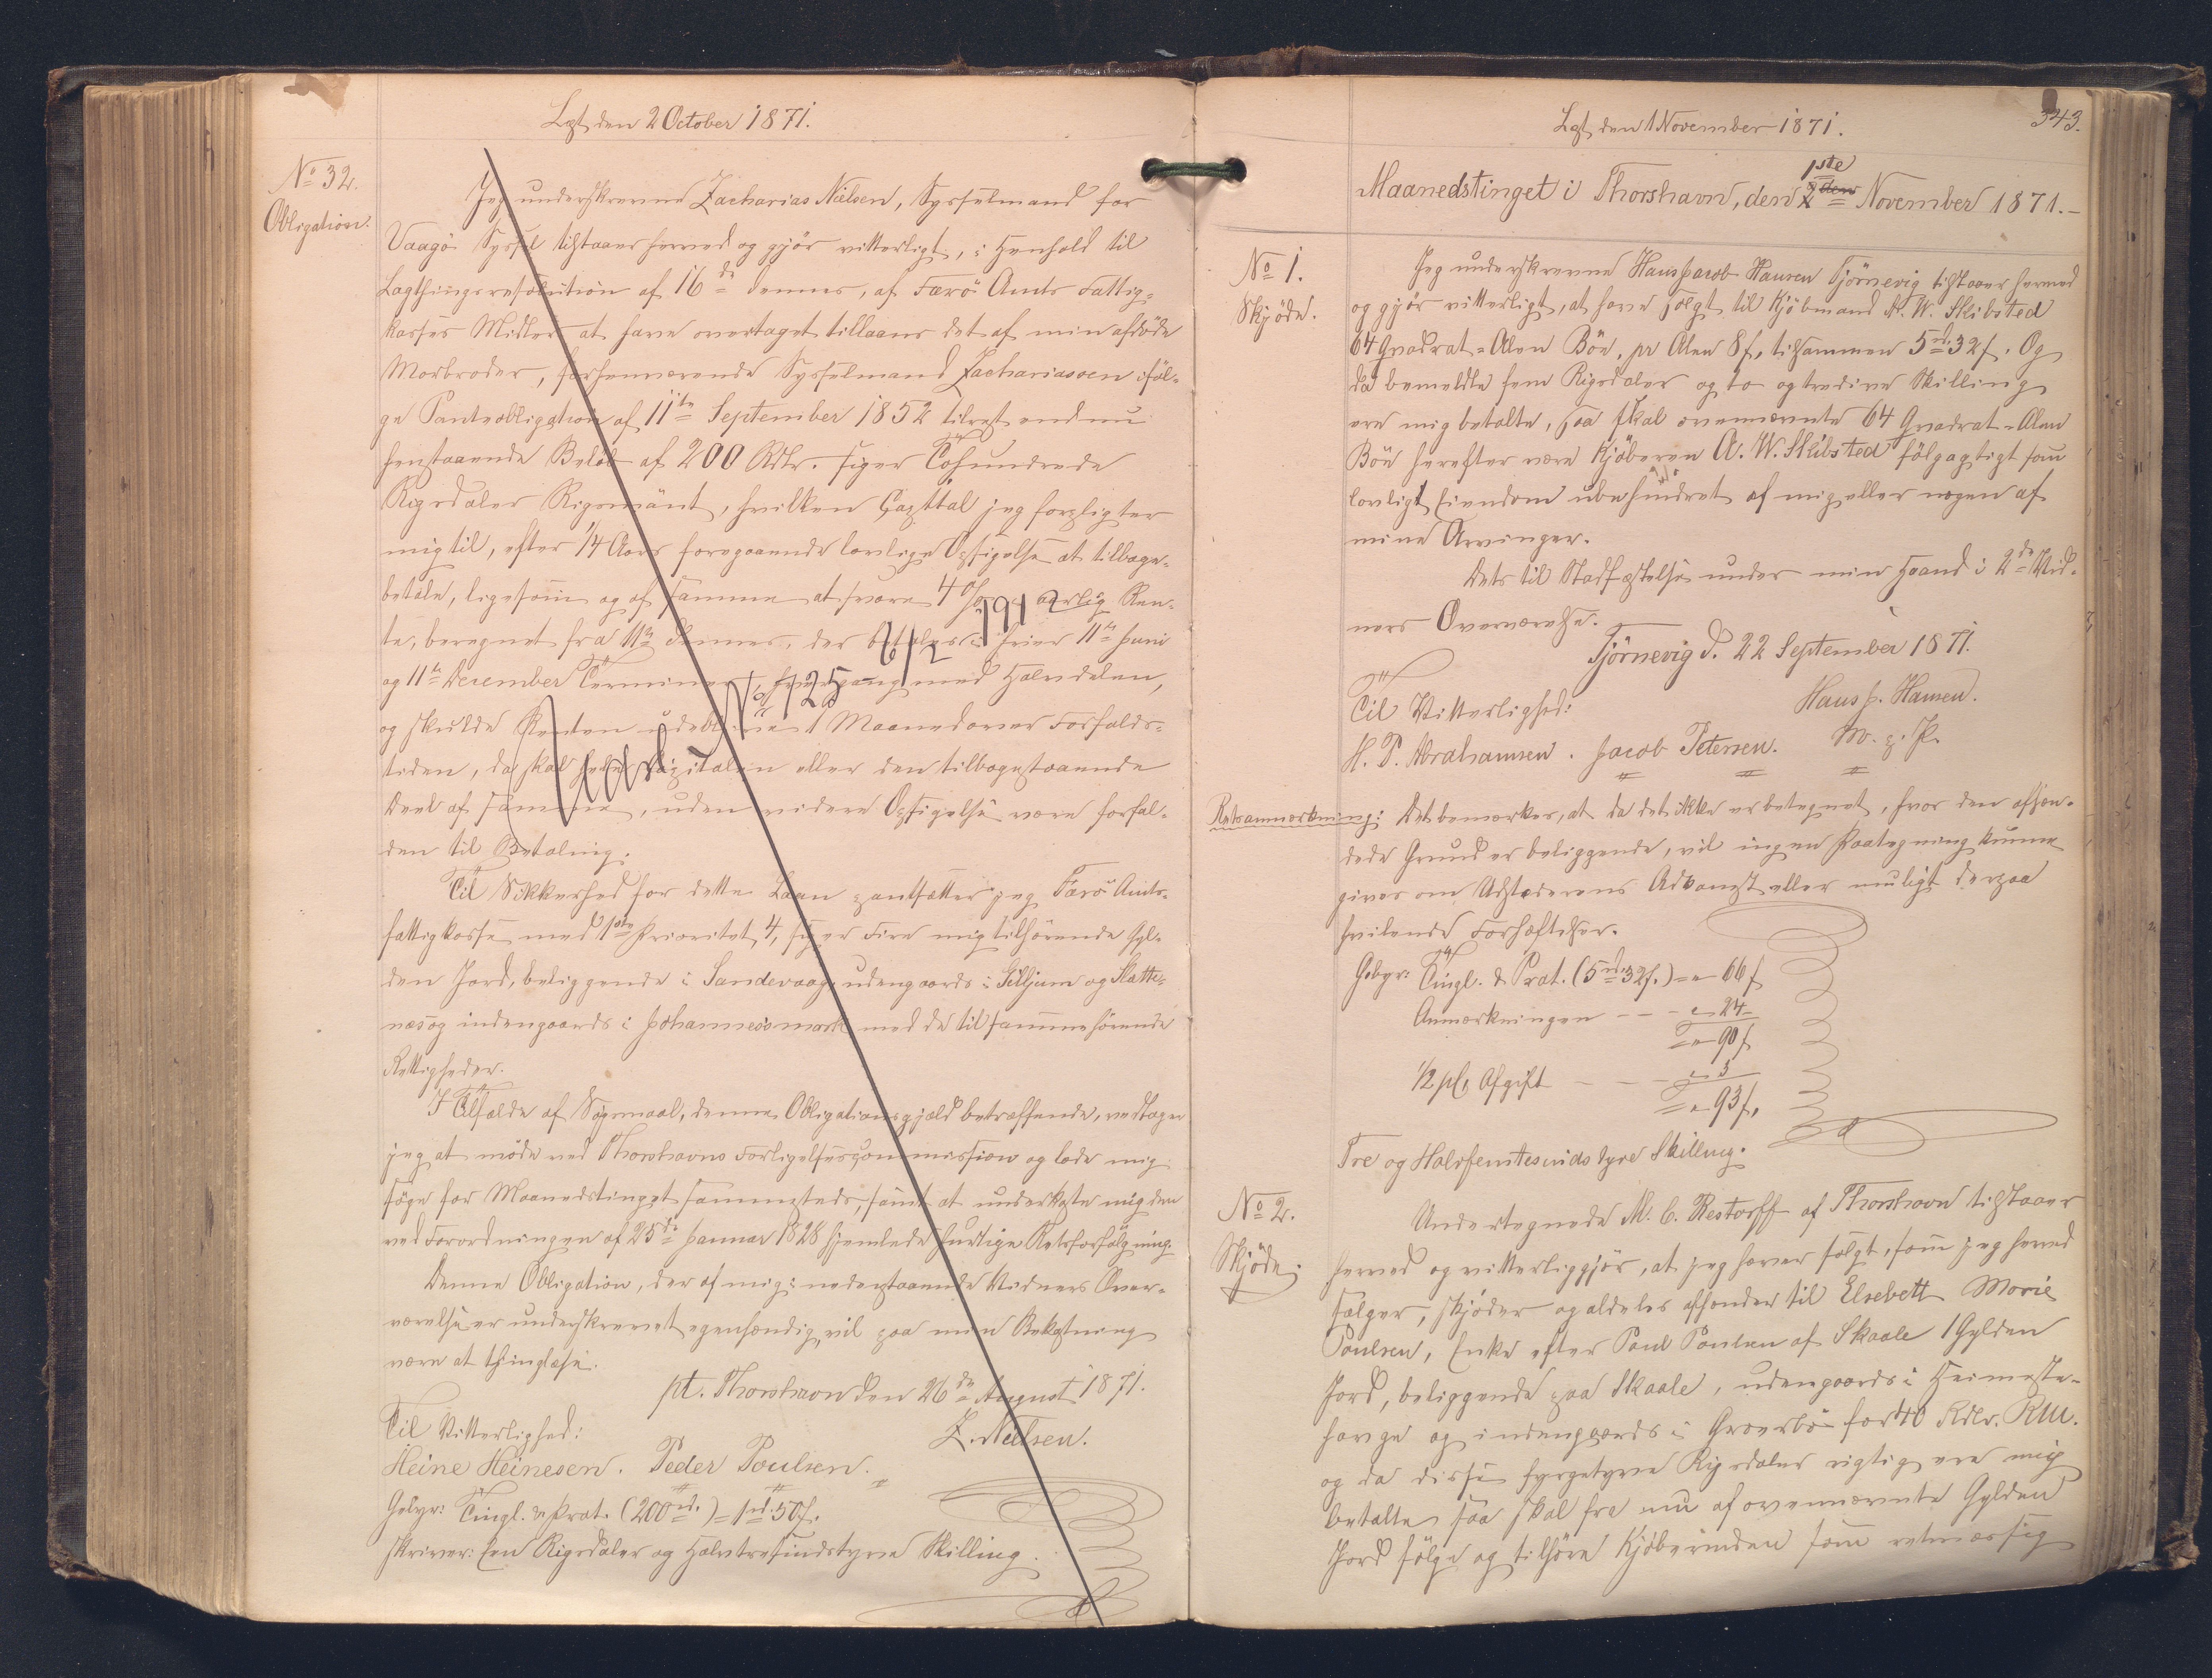 Lgt den 2 October 1871.
No 32.
Obligation.
Jeg underskrevne Zacharias Nielsen, Sysselmand for
Vaagö Syssel tilstaaer herved og gjör vitterligt, i Henhold til
Lagthingsresolution af 16de dennes, af Færö Amts Fattig-
kasses Midler at have overtaget tillaans det af min afdöde
Morbroder, forhenværende Sysselmand Zachariassen iföl-
ge Panteobligation af 11te September 1852 tilrest endnu
henstaaende Belöb af 200 Rdlr. siger Tohundrede
Rigsdaler Rigsmönt, hvilken Capital jeg forpligter
mig til, efter 1/4 Aars foregaaende lovlige Opsigelse at tilbage-
betale, ligesom og af samme at svare 4 % aarlig Ren-
te, beregnet fra 11te dennes, der betales i hver 11te Juni
og 11te December Termin, hver Gang med Halvdelen,
og skulde Renten udeblive 1 Maaned over Forfalds-
tiden, da skal hele Capitalen eller den tilbagestaaende
Deel af samme, uden videre Opsigelse være forfal-
den til Betaling.
Til Sikkerhed for dette Laan pantsætter jeg Færö Amts-
fattigkasse med 1ste Prioritet 4, siger Fire mig tilhörende Gyl-
den Jord, beliggende i Sandevaag, udengaards i Gilljum og Skatte-
næs og indengaards i Johannesmark med de til samme hörende
Rettigheder.
I Tilfælde af Sögsmaal, denne Obligationsgjæld betræffende, vedtager
jeg at möde ved Thorshavns Forligelsescommission og lade mig
söge for Maanedstinget sammesteds, samt at underkaste mig den
ved Forordningen af 25de Januar 1828 hjemlede hurtige Retsforfölgning.
Denne Obligation, der af mig i nedenstaaende Vidners Over-
værelse er underskrevet egenhændig, vil paa min Bekostning
være at thinglæse.
pt. Thorshavn den 26de August 1871.
Til Vitterlighed: Z. Nielsen.
Heine Heinesen. Peder Poulsen.
Gebyr: Tingl. & Prot. (200 rd.) = 1 rd. 50 s.
skriver: Een Rigsdaler og Halvtresindstyve Skilling.
No 125 6/2 1912
343.
Lgt den 1 November 1871.
Maanedstinget i Thorshavn, den 1ste November 1871.-
No 1.
Skjöde.
Jeg underskrevne Hans Jacob Hansen Tjörnevig tilstaaer herved
og gjör vitterligt, at have solgt til Kjöbmand A. W. Skibsted
64 Qvadrat-Alen Böe, pr Alen 8 s, tilsammen 5 rd 32 s. Og
da bemeldte fem Rigsdaler og to og tredive Skilling
ere mig betalte, saa skal ovennævnte 64 Qvadrat-Alen
Böe herefter være Kjöberen A. W. Skibsted fölgagtigt som
lovligt Eiendom ubehindret af mig eller nogen af
mine Arvinger.
Dets til Stadfæstelse under min Haand i 2de Vid-
ners Overværelse.
Tjörnevig d. 22 September 1871.
Til Vitterlighed: Hans J. Hansen.
H. P. Abrahamsen. Jacob Petersen. m. p. P.
Retsanmærkning: Det bemærkes, at da det ikke er betegnet, hvor den afhæn-
dede Grund er beliggende, vil ingen Paategning kunne
gives om Udstederens Adkomst eller muligt derpaa
hvilende Forhæftelser.
Gebyr: Tingl. & Prot. (5 rd. 32 s.) = " 66 s
Anmærkningen - - - " 24 -
= " 90 s
1/2 pCt Afgift - - - " 3
= " 93 s.
Tre og Halvfemtesindstyve Skilling.
No 2.
Skjöde.
Undertegnede M. C. Restorff af Thorshavn tilstaaer
herved og vitterliggjör, at jeg haver solgt, som jeg herved
sælger, skjöder og aldeles afhænder til Elsebett Marie
Poulsen, Enke efter Poul Poulsen af Skaale 1 Gylden
Jord, beliggende paa Skaale, udengaards i Heimaste-
hauge og indengaards i Groverbö for 40 Rdlr. RM.
og da disse fyrgetyve Rigsdaler rigtig ere mig
betalte saa skal fra nu af ovennævnte Gylden
Jord fölge og tilhöre Kjöberinden som retmæssig